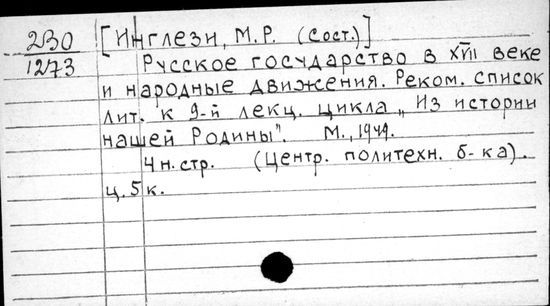 230 [Инглези, М.Р. (Сост.)]
1273 Русское государство в XVII веке
и народные движения. Реком. список
лит. к 9-й лекц. цикла „Из истории
нашей Родины". М., 1949.
4 н. стр. (Центр. политехн. б-ка).
ц. 5 к.